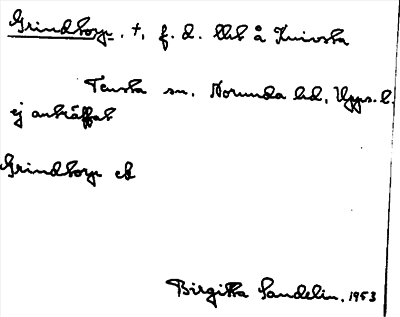 Grindtorp, †, f. d. lht å Knivsta
Tensta sn, Norunda hd, Upps. l.
ej anträffat
Grindtorp ek
Birgitta Sandelin, 1953